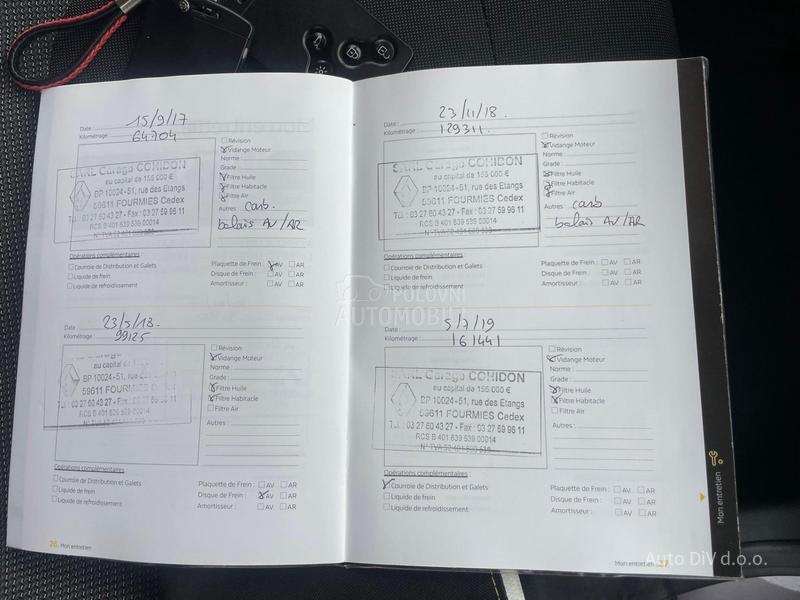 Date : 15/9/17
Kilométrage : 64704
Révision
Vidange Moteur
Norme :
Grade :
Filtre Huile
Filtre Habitacle
Filtre Air
Autres : carb.
balais AV/AR
SARL Garage COHIDON
au capital de 155 000 €
BP 10024 - 51, rue des Etangs
59611 FOURMIES Cedex
Tél. : 03 27 60 43 27 - Fax : 03 27 59 96 11
RCS B 401 639 539 00014
Opérations complémentaires
Courroie de Distribution et Galets
Liquide de frein
Liquide de refroidissement
Plaquette de Frein : AV AR
Disque de Frein : AV AR
Amortisseur : AV AR
Date : 23/5/18.
Kilométrage : 99125
Révision
Vidange Moteur
Norme :
Grade :
Filtre Huile
Filtre Habitacle
Filtre Air
Autres :
au capital de 155
BP 10024 - 51, rue
59611 FOURMIES
Tél. : 03 27 60 43 27 - Fax : 03 27 59 96 11
RCS B 401 639 539 00014
Opérations complémentaires
Courroie de Distribution et Galets
Liquide de frein
Liquide de refroidissement
Plaquette de Frein : AV AR
Disque de Frein : AV AR
Amortisseur : AV AR
26 Mon entretien
Date : 23/11/18.
Kilométrage : 129311.
Révision
Vidange Moteur
Norme :
Grade :
Filtre Huile
Filtre Habitacle
Filtre Air
Autres : carb
balais AV/AR
SARL Garage COHIDON
au capital de 155 000 €
BP 10024 - 51, rue des Etangs
59611 FOURMIES Cedex
Tél. : 03 27 60 43 27 - Fax : 03 27 59 96 11
RCS B 401 639 539 00014
Opérations complémentaires
Courroie de Distribution et Galets
Liquide de frein
Liquide de refroidissement
Plaquette de Frein : AV AR
Disque de Frein : AV AR
Amortisseur : AV AR
Date : 5/7/19
Kilométrage : 161441
Révision
Vidange Moteur
Norme :
Grade :
Filtre Huile
Filtre Habitacle
Filtre Air
Autres :
SARL Garage COHIDON
au capital de 155 000 €
BP 10024 - 51, rue des Etangs
59611 FOURMIES Cedex
Tél. : 03 27 60 43 27 - Fax : 03 27 59 96 11
RCS B 401 639 539 00014
Opérations complémentaires
Courroie de Distribution et Galets
Liquide de frein
Liquide de refroidissement
Plaquette de Frein : AV AR
Disque de Frein : AV AR
Amortisseur : AV AR
Mon entretien
Mon entretien
POLOVNI
AUTOMOBILI
Auto DiV d.o.o.